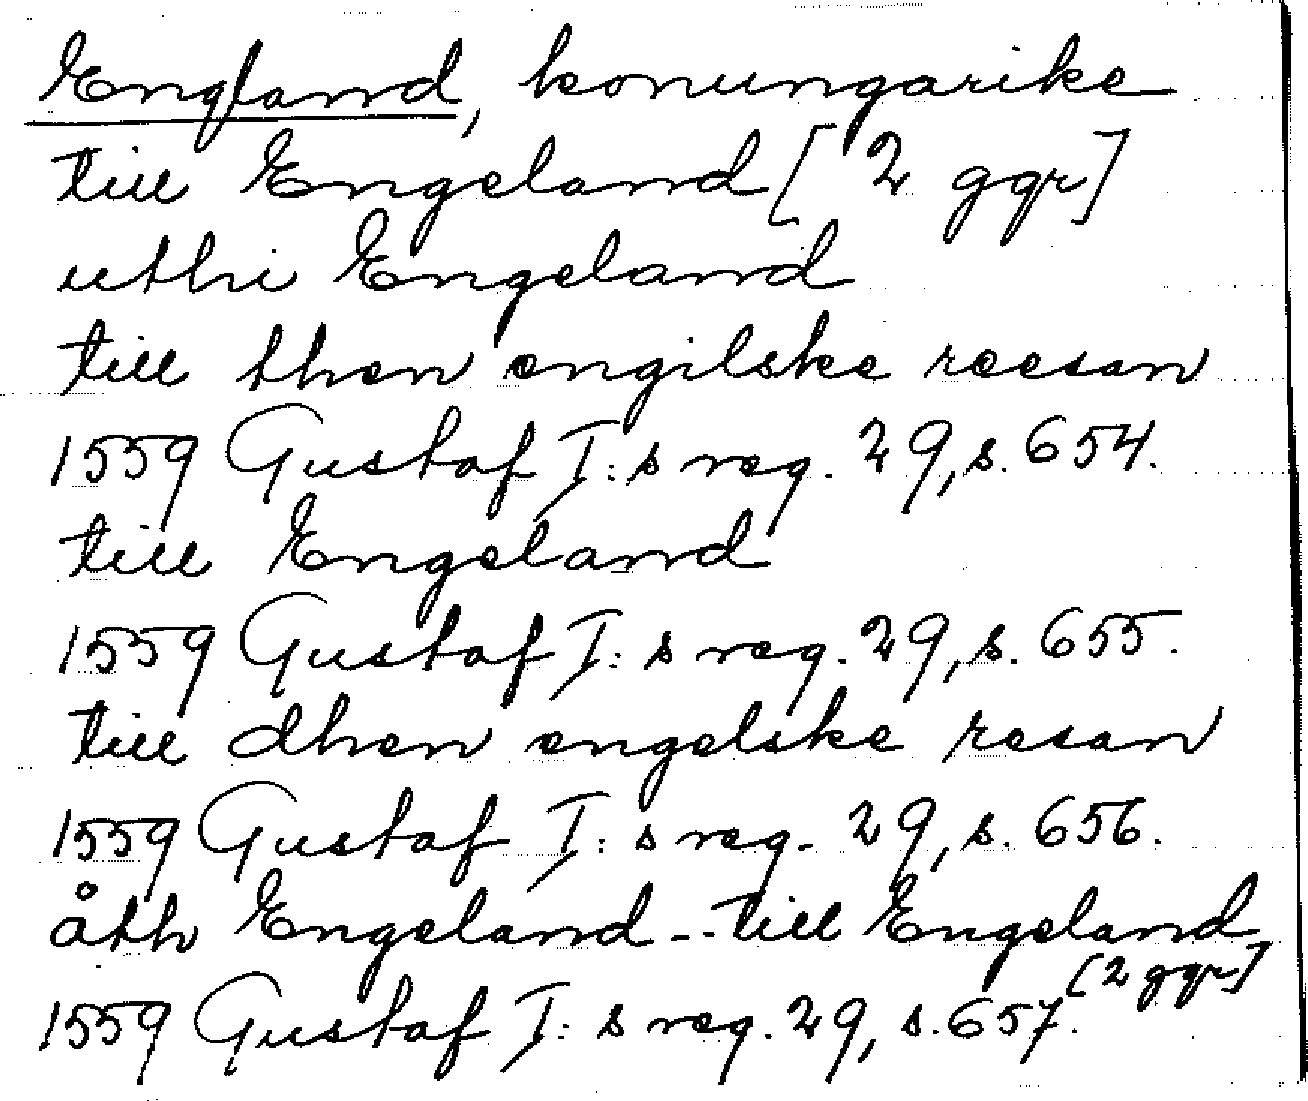 England, konungarike
till Engeland [2 ggr]
uthi Engeland
till then engilske reesan
1559 Gustaf I:s reg. 29, s. 654.
till Engeland
1559 Gustaf I:s reg. 29, s. 655.
till dhen engelske resan
1559 Gustaf I:s reg. 29, s. 656.
åth Engeland -- till Engeland
[2 ggr]
1559 Gustaf I:s reg. 29, s. 657.